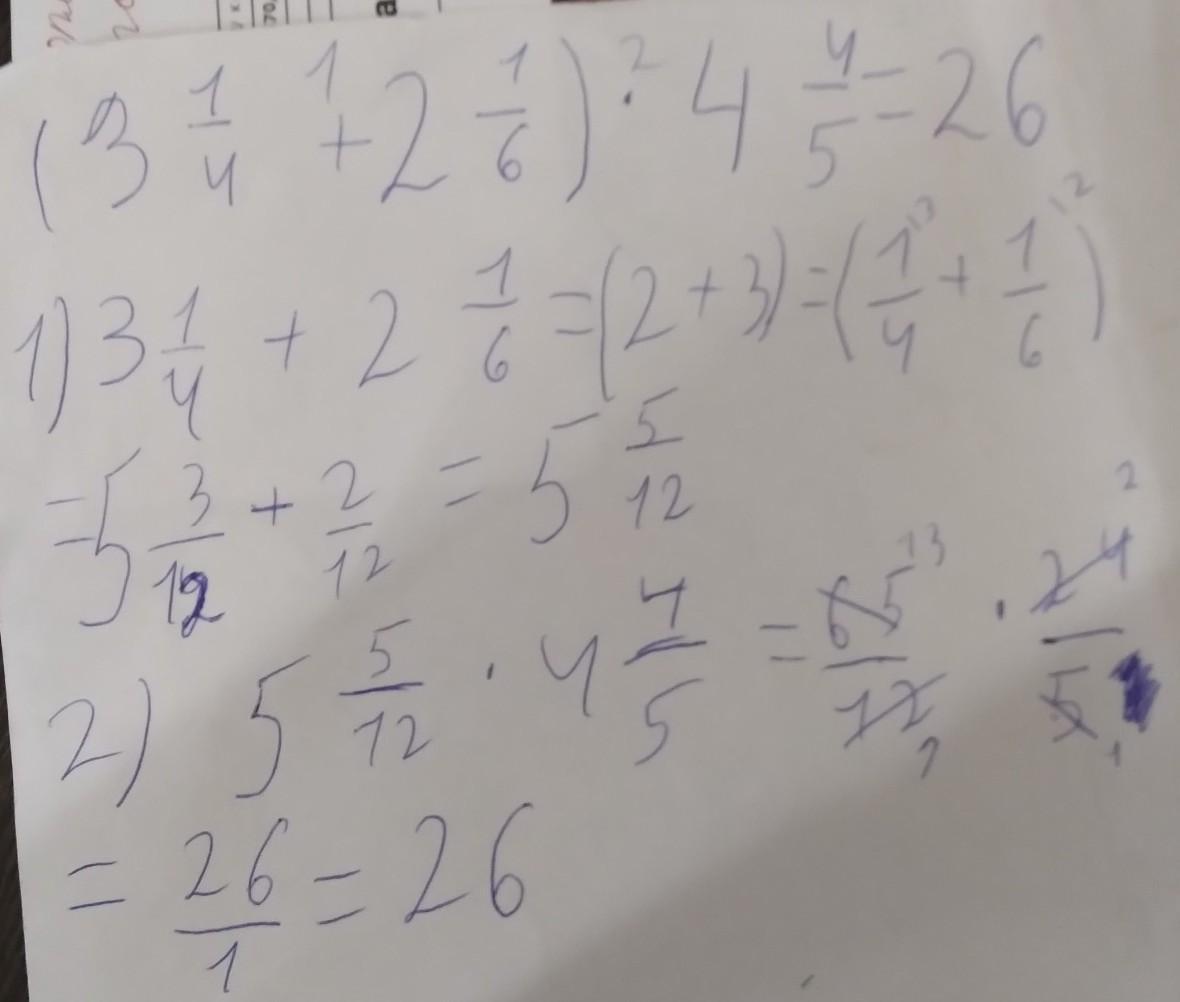 (3 1/4 + 2 1/6) · 4 4/5 = 26
1) 3 1/4 + 2 1/6 = (2 + 3) = (1/4 + 1/6)
= 5 3/12 + 2/12 = 5 5/12
2) 5 5/12 · 4 4/5 = 65/12 · 24/5
= 26/1 = 26